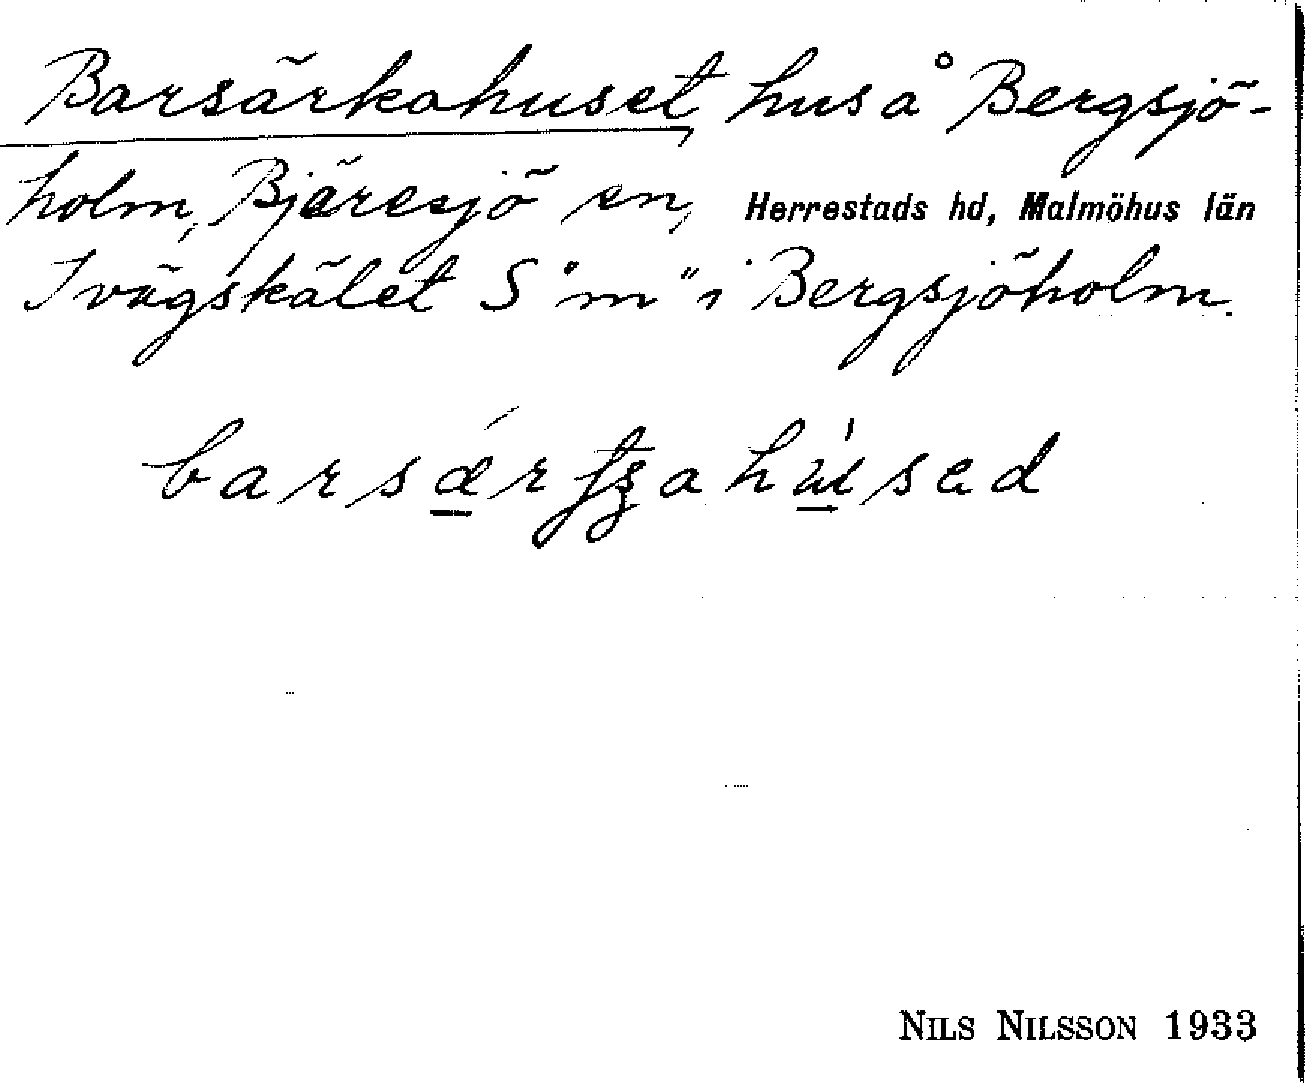 Barsärkahuset, hus å Bergsjö-
holm, Bjäresjö sn, Herrestads hd, Malmöhus län
I vägskälet S "m" i Bergsjöholm.
NILS NILSSON 1933